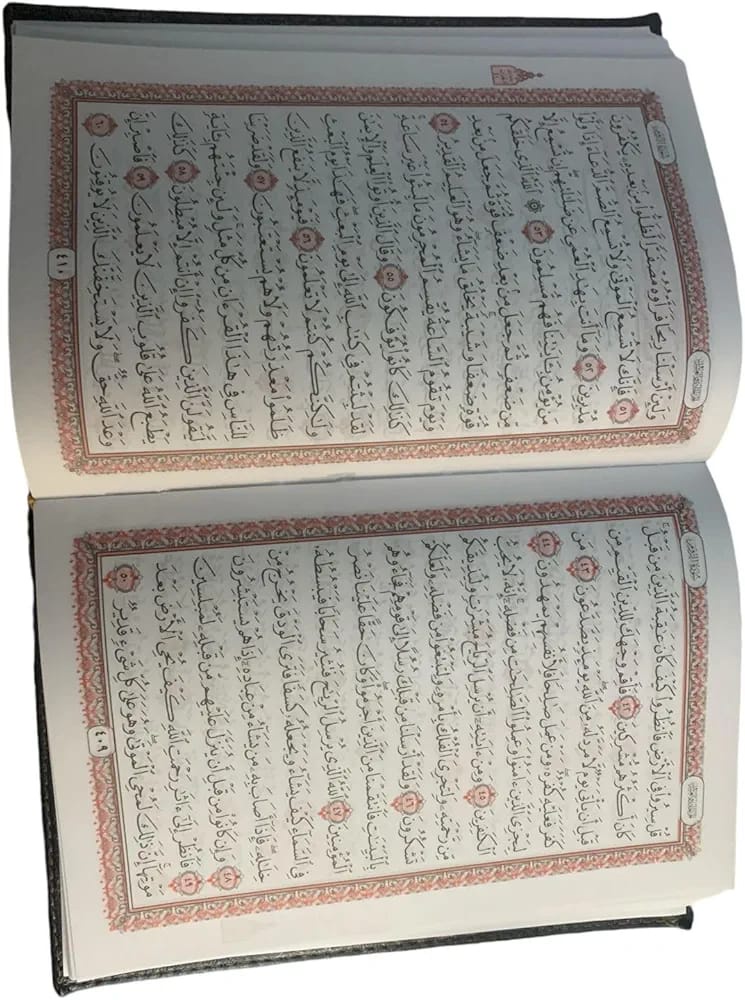 سورة الروم
الجزء الحادي والعشرون
قُلْ سِيرُوا۟ فِى ٱلْأَرْضِ فَٱنظُرُوا۟ كَيْفَ كَانَ عَٰقِبَةُ ٱلَّذِينَ مِن قَبْلُ
كَانَ أَكْثَرُهُم مُّشْرِكِينَ ٤٢ فَأَقِمْ وَجْهَكَ لِلدِّينِ ٱلْقَيِّمِ مِن
قَبْلِ أَن يَأْتِىَ يَوْمٌ لَّا مَرَدَّ لَهُۥ مِنَ ٱللَّهِ يَوْمَئِذٍ يَصَّدَّعُونَ ٤٣ مَن
كَفَرَ فَعَلَيْهِ كُفْرُهُۥ وَمَنْ عَمِلَ صَٰلِحًا فَلِأَنفُسِهِمْ يَمْهَدُونَ ٤٤
لِيَجْزِىَ ٱلَّذِينَ ءَامَنُوا۟ وَعَمِلُوا۟ ٱلصَّٰلِحَٰتِ مِن فَضْلِهِۦٓ إِنَّهُۥ لَا يُحِبُّ
ٱلْكَٰفِرِينَ ٤٥ وَمِنْ ءَايَٰتِهِۦٓ أَن يُرْسِلَ ٱلرِّيَاحَ مُبَشِّرَٰتٍ وَلِيُذِيقَكُم
مِّن رَّحْمَتِهِۦ وَلِتَجْرِىَ ٱلْفُلْكُ بِأَمْرِهِۦ وَلِتَبْتَغُوا۟ مِن فَضْلِهِۦ وَلَعَلَّكُمْ
تَشْكُرُونَ ٤٦ وَلَقَدْ أَرْسَلْنَا مِن قَبْلِكَ رُسُلًا إِلَىٰ قَوْمِهِمْ فَجَآءُوهُم
بِٱلْبَيِّنَٰتِ فَٱنتَقَمْنَا مِنَ ٱلَّذِينَ أَجْرَمُوا۟ وَكَانَ حَقًّا عَلَيْنَا نَصْرُ
ٱلْمُؤْمِنِينَ ٤٧ ٱللَّهُ ٱلَّذِى يُرْسِلُ ٱلرِّيَٰحَ فَتُثِيرُ سَحَابًا فَيَبْسُطُهُۥ
فِى ٱلسَّمَآءِ كَيْفَ يَشَآءُ وَيَجْعَلُهُۥ كِسَفًا فَتَرَى ٱلْوَدْقَ يَخْرُجُ مِنْ
خِلَٰلِهِۦ فَإِذَآ أَصَابَ بِهِۦ مَن يَشَآءُ مِنْ عِبَادِهِۦٓ إِذَا هُمْ يَسْتَبْشِرُونَ
٤٨ وَإِن كَانُوا۟ مِن قَبْلِ أَن يُنَزَّلَ عَلَيْهِم مِّن قَبْلِهِۦ لَمُبْلِسِينَ
٤٩ فَٱنظُرْ إِلَىٰٓ ءَاثَٰرِ رَحْمَتِ ٱللَّهِ كَيْفَ يُحْىِ ٱلْأَرْضَ بَعْدَ
مَوْتِهَآ إِنَّ ذَٰلِكَ لَمُحْىِ ٱلْمَوْتَىٰ وَهُوَ عَلَىٰ كُلِّ شَىْءٍ قَدِيرٌ ٥٠
٤٠٩
سورة الروم
الجزء الحادي والعشرون
وَلَئِنْ أَرْسَلْنَا رِيحًا فَرَأَوْهُ مُصْفَرًّا لَّظَلُّوا۟ مِنۢ بَعْدِهِۦ يَكْفُرُونَ
٥١ فَإِنَّكَ لَا تُسْمِعُ ٱلْمَوْتَىٰ وَلَا تُسْمِعُ ٱلصُّمَّ ٱلدُّعَآءَ إِذَا وَلَّوْا۟
مُدْبِرِينَ ٥٢ وَمَآ أَنتَ بِهَٰدِ ٱلْعُمْىِ عَن ضَلَٰلَتِهِمْ إِن تُسْمِعُ إِلَّا
مَن يُؤْمِنُ بِـَٔايَٰتِنَا فَهُم مُّسْلِمُونَ ٥٣ ۞ ٱللَّهُ ٱلَّذِى خَلَقَكُم
مِّن ضَعْفٍ ثُمَّ جَعَلَ مِنۢ بَعْدِ ضَعْفٍ قُوَّةً ثُمَّ جَعَلَ مِنۢ بَعْدِ
قُوَّةٍ ضَعْفًا وَشَيْبَةً يَخْلُقُ مَا يَشَآءُ وَهُوَ ٱلْعَلِيمُ ٱلْقَدِيرُ ٥٤
وَيَوْمَ تَقُومُ ٱلسَّاعَةُ يُقْسِمُ ٱلْمُجْرِمُونَ مَا لَبِثُوا۟ غَيْرَ سَاعَةٍ
كَذَٰلِكَ كَانُوا۟ يُؤْفَكُونَ ٥٥ وَقَالَ ٱلَّذِينَ أُوتُوا۟ ٱلْعِلْمَ وَٱلْإِيمَٰنَ
لَقَدْ لَبِثْتُمْ فِى كِتَٰبِ ٱللَّهِ إِلَىٰ يَوْمِ ٱلْبَعْثِ فَهَٰذَا يَوْمُ ٱلْبَعْثِ
وَلَٰكِنَّكُمْ كُنتُمْ لَا تَعْلَمُونَ ٥٦ فَيَوْمَئِذٍ لَّا يَنفَعُ ٱلَّذِينَ
ظَلَمُوا۟ مَعْذِرَتُهُمْ وَلَا هُمْ يُسْتَعْتَبُونَ ٥٧ وَلَقَدْ ضَرَبْنَا
لِلنَّاسِ فِى هَٰذَا ٱلْقُرْءَانِ مِن كُلِّ مَثَلٍ وَلَئِن جِئْتَهُم بِـَٔايَةٍ
لَّيَقُولَنَّ ٱلَّذِينَ كَفَرُوٓا۟ إِنْ أَنتُمْ إِلَّا مُبْطِلُونَ ٥٨ كَذَٰلِكَ
يَطْبَعُ ٱللَّهُ عَلَىٰ قُلُوبِ ٱلَّذِينَ لَا يَعْلَمُونَ ٥٩ فَٱصْبِرْ إِنَّ
وَعْدَ ٱللَّهِ حَقٌّ وَلَا يَسْتَخِفَّنَّكَ ٱلَّذِينَ لَا يُوقِنُونَ ٦٠
٤١٠